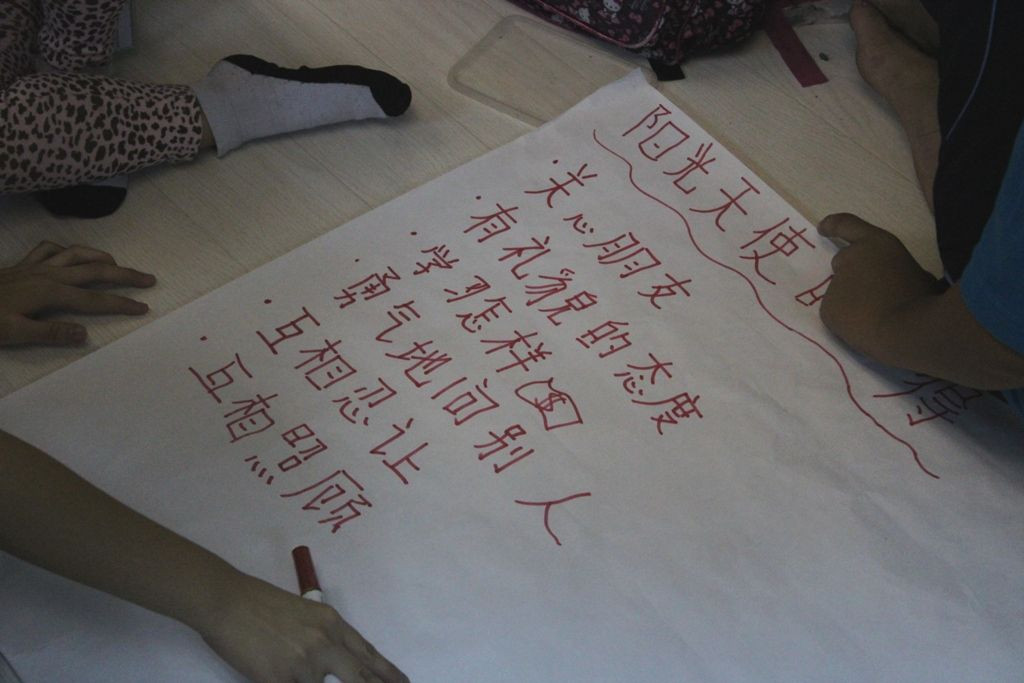 阳光天使的 得
· 关心朋友
· 有礼貌的态度
· 学习怎样画
· 勇气地问别人
· 互相忍让
· 互相照顾